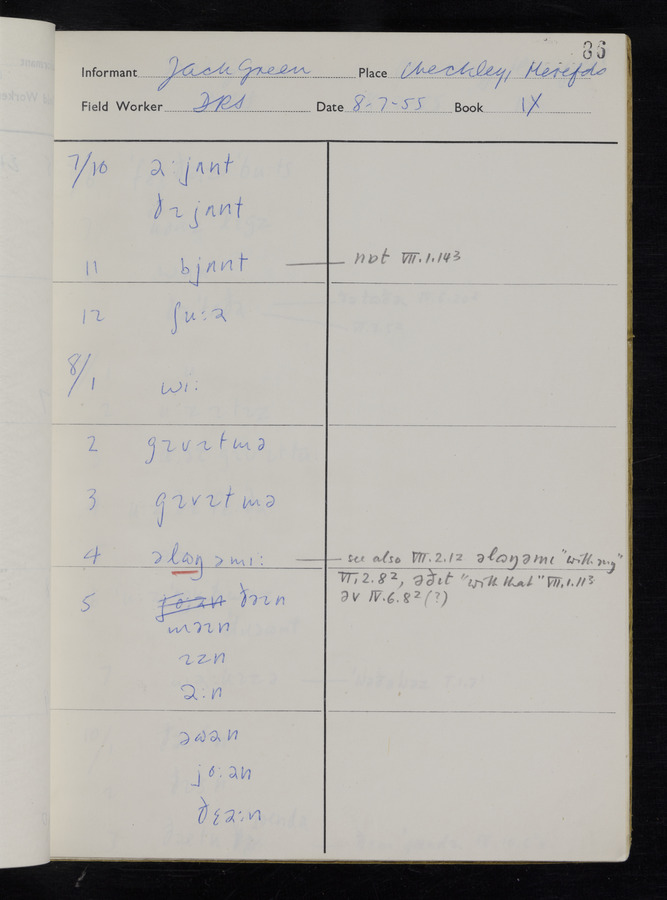 86
Informant Jack Green Place Checkley, Herefds
Field Worker DRS Date 8-7-55 Book IX
7/10 əː jɒnt
ðɪ jɒnt
11 bjɒnt not VII.1.143
12 ʃuːə
8/1 wiː
2 gɪvɪt mə
3 gɪvɪt mə
4 əlɒŋ əmiː see also VII.2.12 əlɒŋəmɪ "with my"
VI.2.82, əðɪt "with that" VII.1.113
5 ðəɪn əv IV.6.82(?)
məɪn
ɪzn
əːn
əωən
joːən
ðɛəːn